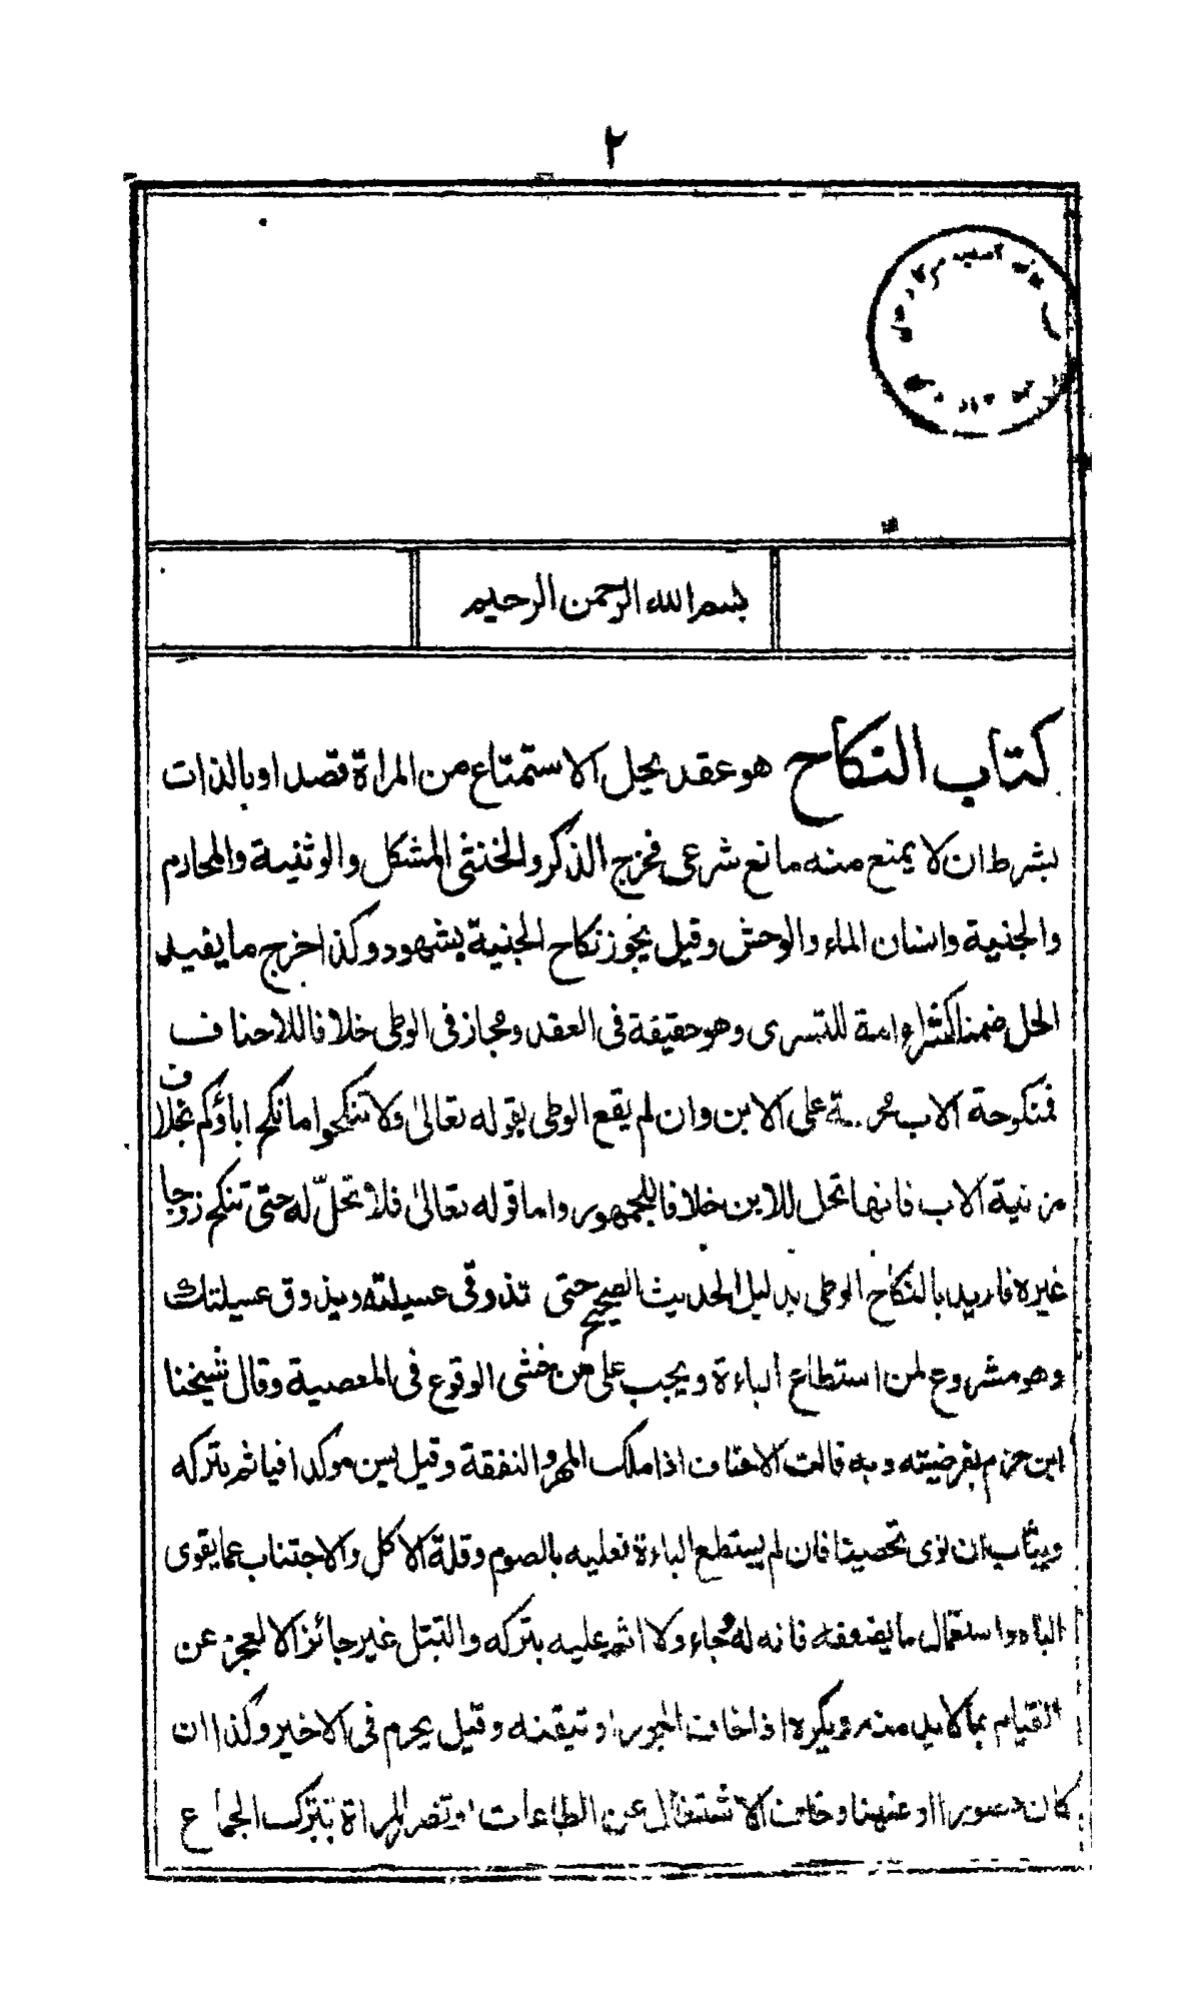 ٢
بسم الله الرحمن الرحيم
كتاب النكاح هو عقد يحل الاستمتاع من المراة قصدا وبالذات
بشرط ان لا يمنع منه مانع شرعى فخرج الذكر والخنثى المشكل والوثنية والمحارم
والجنية وانسان الماء والوحش وقيل يجوز نكاح الجنية بشهود وكذا خرج ما يفيد
الحل ضمنا كشراء امة للتسرى وهو حقيقة فى العقد ومجاز فى الوطى خلافا للاحناف
فمنكوحة الاب على الابن وان لم يقع الوطى بقوله تعالىٰ ولا تنكحوا ما نكح اباؤكم بخلاف
مزنية الاب فانها تحل للابن خلافا للجمهور واما قوله تعالىٰ فلا تحلّ له حتى تنكح زوجا
غيره فاريد بالنكاح الوطى بدليل الحديث الصحيح حتى تذوقى عسيلته ويذوق عسيلتك
وهو مشروع لمن استطاع الباءة ويجب على من خشى الوقوع فى المعصية وقال شيخنا
ابن حزم بفرضيته وبه قالت الاحناف اذا ملك المهر والنفقة وقيل يسن موكدا فياثم بتركه
ويثاب ان نوى تحصينا فان لم يستطع الباءة فعليه بالصوم وقلة الاكل والاجتناب عما يقوى
الباه واستعمال ما يضعفه فانه له وجاء ولا اثم عليه بتركه والتبتل غير جائز الا لعجز عن
القيام بما لا بد منه ويكره اذا خاف الجور او تيقنه وقيل يحرم فى الاخير وكذا ان
كان حصورا او عنينا وخاف الاشتغال عن الطاعات او تضر المراة بترك الجماع